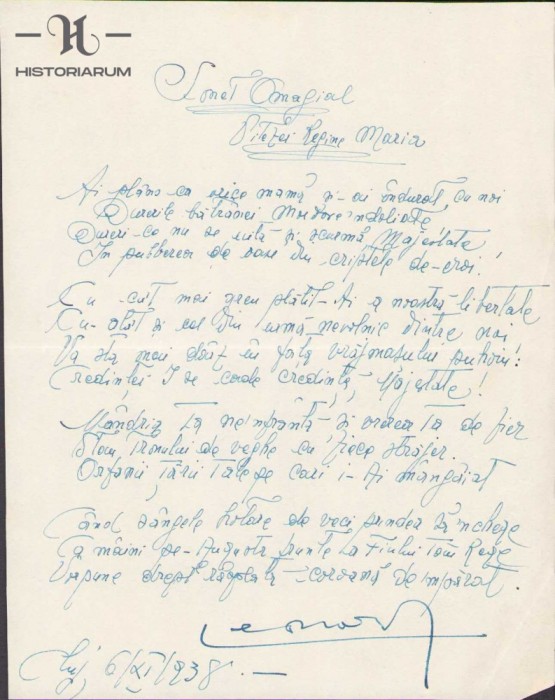 H
HISTORIARUM
Sonet Omagial
Vitezei Regine Maria
Ai plâns ca orice mamă și-ai îndurat, cu noi
Durerile bătrânei Moldove îndoliate
Dureri ce nu se uită și scumă Majestate
In pulberea de oase din criptele de-eroi!
Cu cât mai greu plătit-Ai a noastră libertate
Cu-atât și cel din urmă nevolnic dintre noi
Va sta mai dârz în fața vrăjmașului
Credinței I se cade credință, Majestate!
Mândria Ta neinfrântă și vrerea Ta de fier
Stau, Tronului de veghe cu fiece străjer.
Orfanii Țării Tale pe Cari i-Ai mangâiat
Când sângele hotare de veci prindea să închege
Ca mâini pe-Augusta frunte a Fiului Tău Rege
Vor pune drept răsplată coroană de împărat.
Cluj, 6/XI/938.